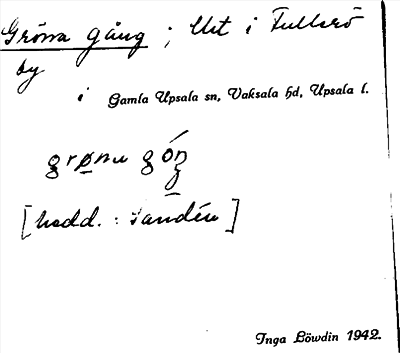 Gröna gång ; Ut i Fullerö
by
i Gamla Upsala sn, Vaksala hd, Upsala l.
grønu góŋ
[medd. : Sandén]
Inga Löwdin 1942.